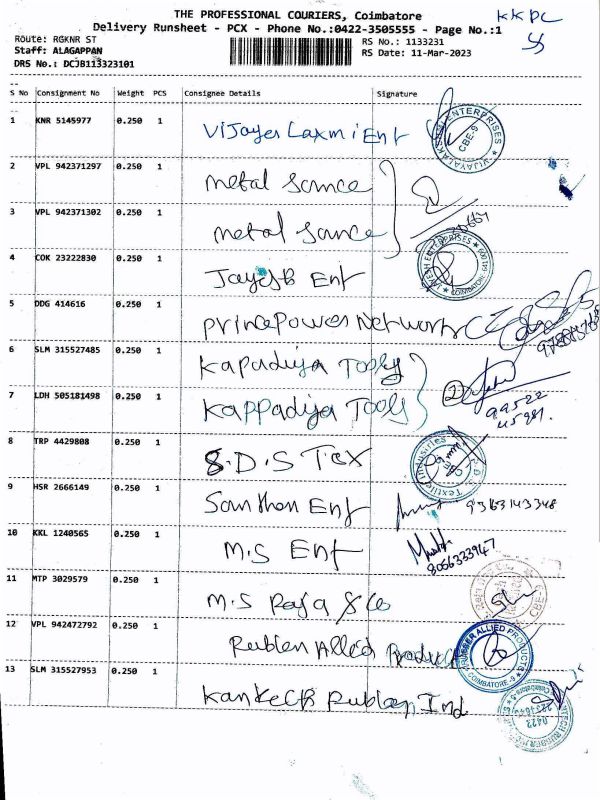 THE PROFESSIONAL COURIERS, Coimbatore
KKPC
Delivery Runsheet - PCX - Phone No.:0422-3505555 - Page No.:1
Route: RGKNR ST
RS No.: 1133231
Staff: ALAGAPPAN
RS Date: 11-Mar-2023
DRS No.: DCJB113323101
S No Consignment No Weight PCS Consignee Details Signature
1 KNR 5145977 0.250 1 Vijaya Laxmi Ent
VIJAYALAKSHMI ENTERPRISES CBE-9
2 VPL 942371297 0.250 1 metal Source
3 VPL 942371302 0.250 1 metal Source
4 COK 23222830 0.250 1 Jayesh Ent
ENTERPRISES COIMBATORE
5 DDG 414616 0.250 1 Prince Power Network
6 SLM 315527485 0.250 1 Kapadiya Tools
7 LDH 505181498 0.250 1 Kappadiya Tools
2
99522
45981.
8 TRP 4429808 0.250 1 S.D.S Tex
9 HSR 2666149 0.250 1 Santhan Ent 9363143348
10 KKL 1240565 0.250 1 M.S Ent
8056333947
11 MTP 3029579 0.250 1 M.S Raja & Co
12 VPL 942472792 0.250 1 Rubber Allied Product
RUBBER ALLIED PRODUCTS COIMBATORE -9
13 SLM 315527953 0.250 1 Rubber Ind
0422